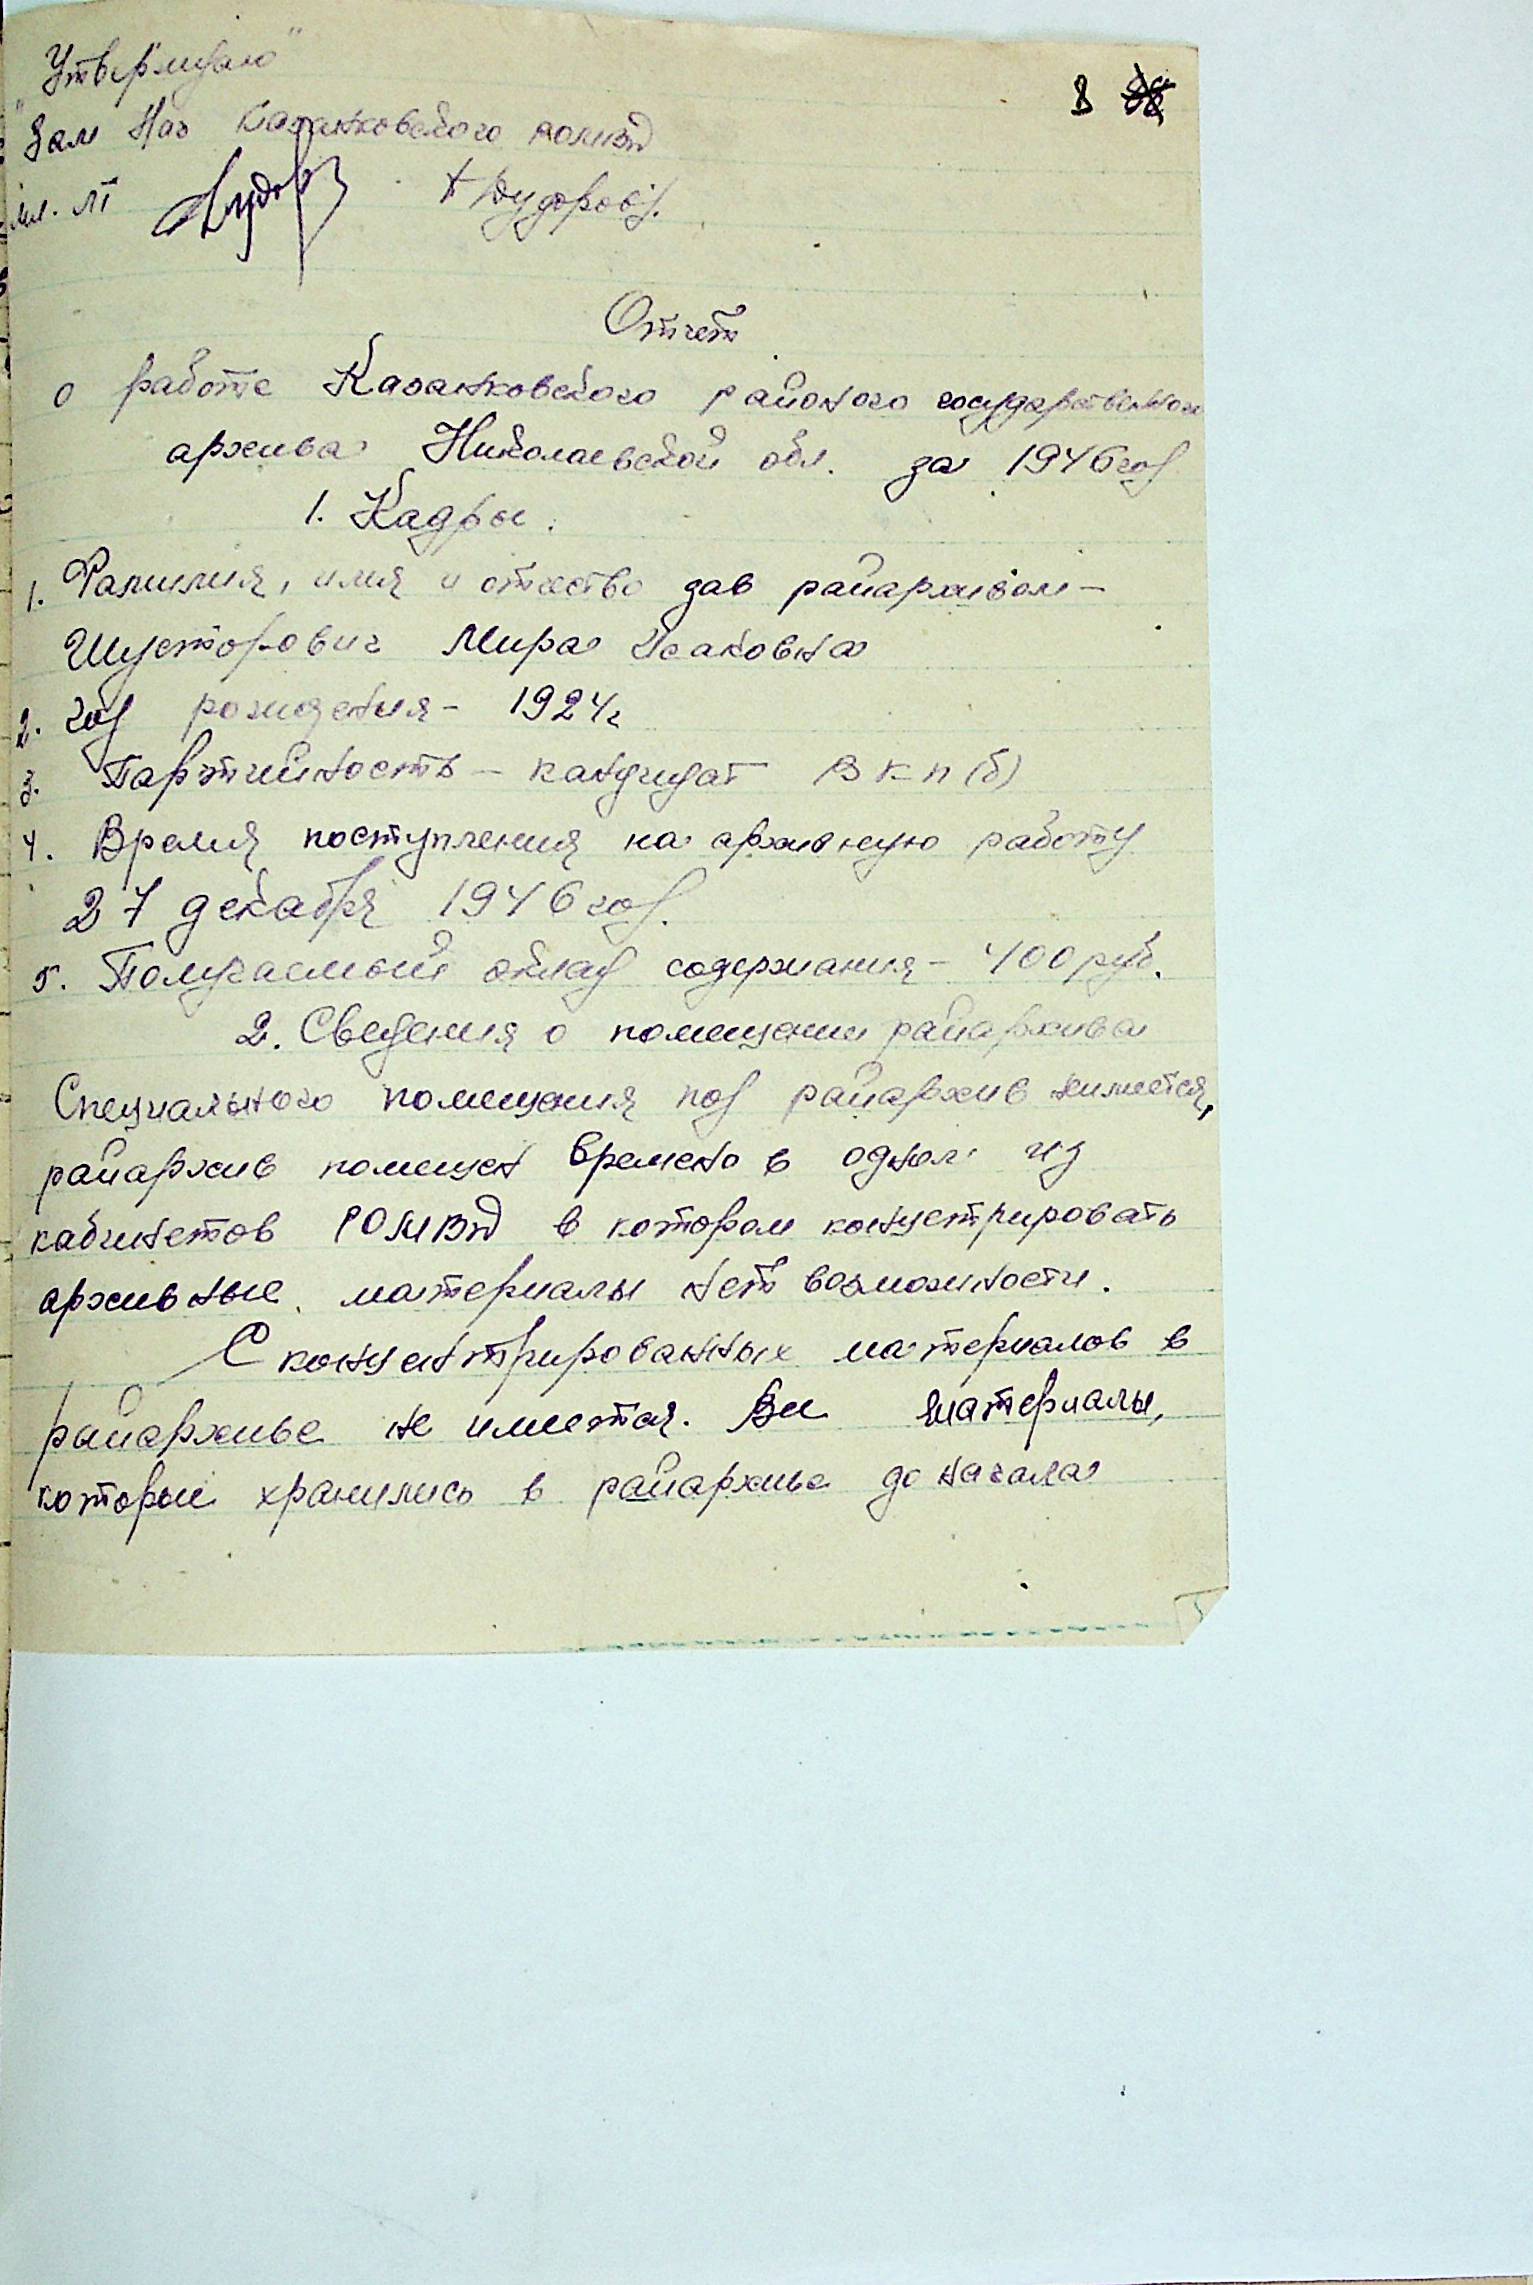 "Утверждаю"
8
"Зам Нач Казанковского РОМВД
мл. лт
/Дудоров/.
Отчет
о работе Казанковского района государственного
архива Николаевской обл. за 1946 год
1. Кадры.
1. Фамилия, имя и отчество зав райархивом –
Шусторович Мира Исаковна
2. год рождения – 1924 г
3. Партийность – кандидат ВКП(б)
4. Время поступления на архивную работу
27 декабря 1946 год.
5. Получаемый оклад содержания – 400 руб.
2. Сведения о помещении райархива
Специального помещения под райархив неимеется,
райархив помещен времено в одном из
кабинетов РОМВД в котором концетрировать
архивные материалы нет возможности.
Сконцентрированных материалов в
райархиве не имеется. Все материалы,
которые хранились в райархиве до начала